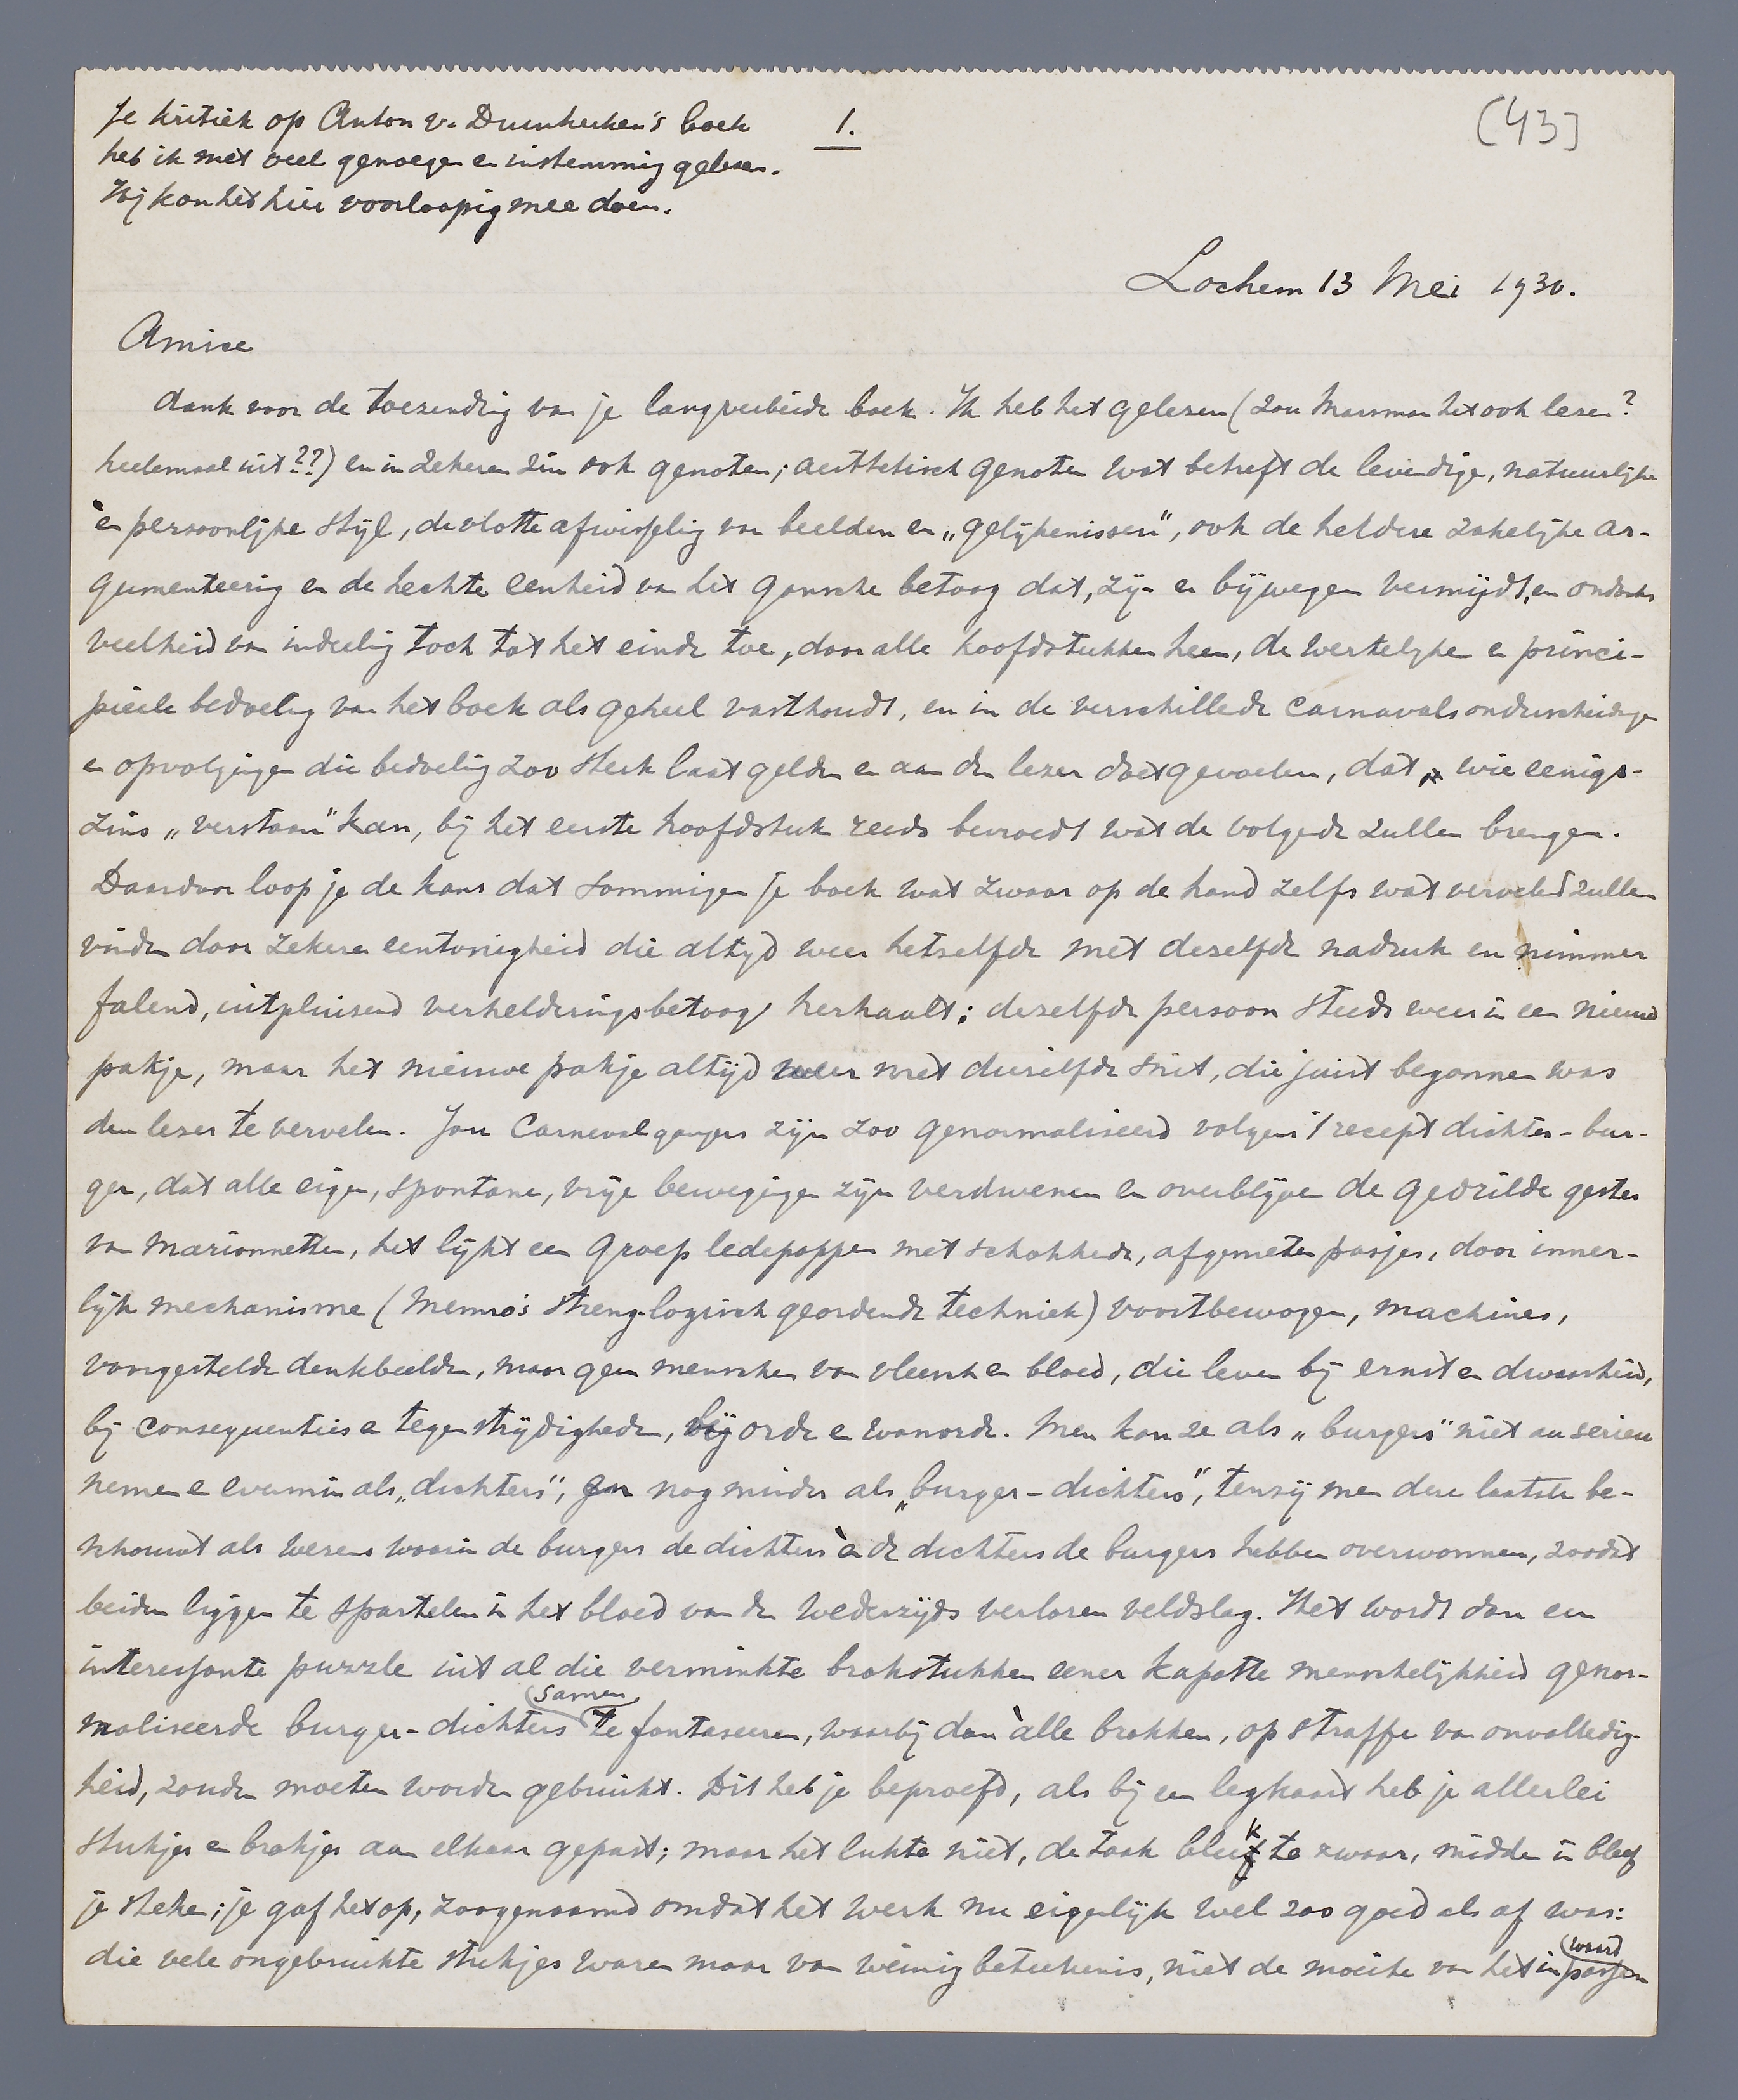 Je kritiek op Anton v. Duinkerken's boek
heb ik met veel genoegen en instemming gelezen.
Hij kan het hier voorloopig mee doen.
1.
(43]
Lochem 13 Mei 1930.
Amice
dank voor de toezending van je langverbeide boek. Ik heb het gelezen (zou Marsman het ook lezen?
heelemaal uit??) en in zekeren zin ook genoten; aesthetisch genoten wat betreft de levendige, natuurlijke
èn persoonlijke stijl, de vlotte afwisseling van beelden en „gelijkenissen", ook de heldere zakelijke ar-
gumenteering en de hechte eenheid van het gansche betoog dat, zij- en bijwegen vermijdt, en ondanks
veelheid van indeeling toch tot het einde toe, door alle hoofdstukken heen, de werkelijke en princi-
pieele bedoeling van het boek als geheel vasthoudt, en in de verschillende carnavalsonderscheidingen
en opvolgingen die bedoeling zoo sterk laat gelden en aan den lezer doet gevoelen, dat wie eenigs-
zins „verstaan" kan, bij het eerste hoofdstuk reeds bevroedt wat de volgende zullen brengen.
Daardoor loop je de kans dat sommigen je boek wat zwaar op de hand zelfs wat vervelend zullen
vinden door zekere eentonigheid die altijd weer hetzelfde met dezelfde nadruk en nimmer
falend, uitpluizend verhelderingsbetoog herhaalt; dezelfde persoon steeds weer in een nieuw
pakje, maar het nieuwe pakje altijd weer met diezelfde snit, die juist begonnen was
den lezer te vervelen. Jou Carnevalgangers zijn zoo genormaliseerd volgens 't recept dichter-bur-
ger, dat alle eigen, spontane, vrije bewegingen zijn verdwenen en overblijven de gedrilde gestes
van marionnetten, het lijkt een groep ledepoppen met schokkende, afgemeten pasjes, door inner-
lijk mechanisme (Menno's streng-logisch geordende techniek) voortbewogen, machines,
voorgestelde denkbeelden, maar geen menschen van vleesch en bloed, die leven bij ernst en dwaasheid,
bij consequenties en tegenstrijdigheden, bij orde en wanorde. Men kan ze als „burgers" niet au serieu
nemen en evenmin als „dichters", en nog minder als „burger-dichters", tenzij men deze laatste be-
schouwt als wezens waarin de burgers de dichters èn de dichters de burgers hebben overwonnen, zoodat
beiden liggen te spartelen in het bloed van den wederzijds verloren veldslag. Het wordt dan een
interessante puzzle uit al die verminkte brokstukken eener kapotte menschelijkheid genor-
maliseerde burger-dichters samen te fantaseeren, waarbij dan àlle brokken, op straffe van onvolledig-
heid, zouden moeten worden gebruikt. Dit heb je beproefd, als bij een legkaart heb je allerlei
stukjes en brokjes aan elkaar gepast; maar het lukte niet, de taak bleek te zwaar, midden in bleef
je steken; je gaf het op, zoogenaamd omdat het werk nu eigenlijk wel zoo goed als af was:
die vele ongebruikte stukjes waren maar van weinig beteekenis, niet de moeite van het inpassen waard